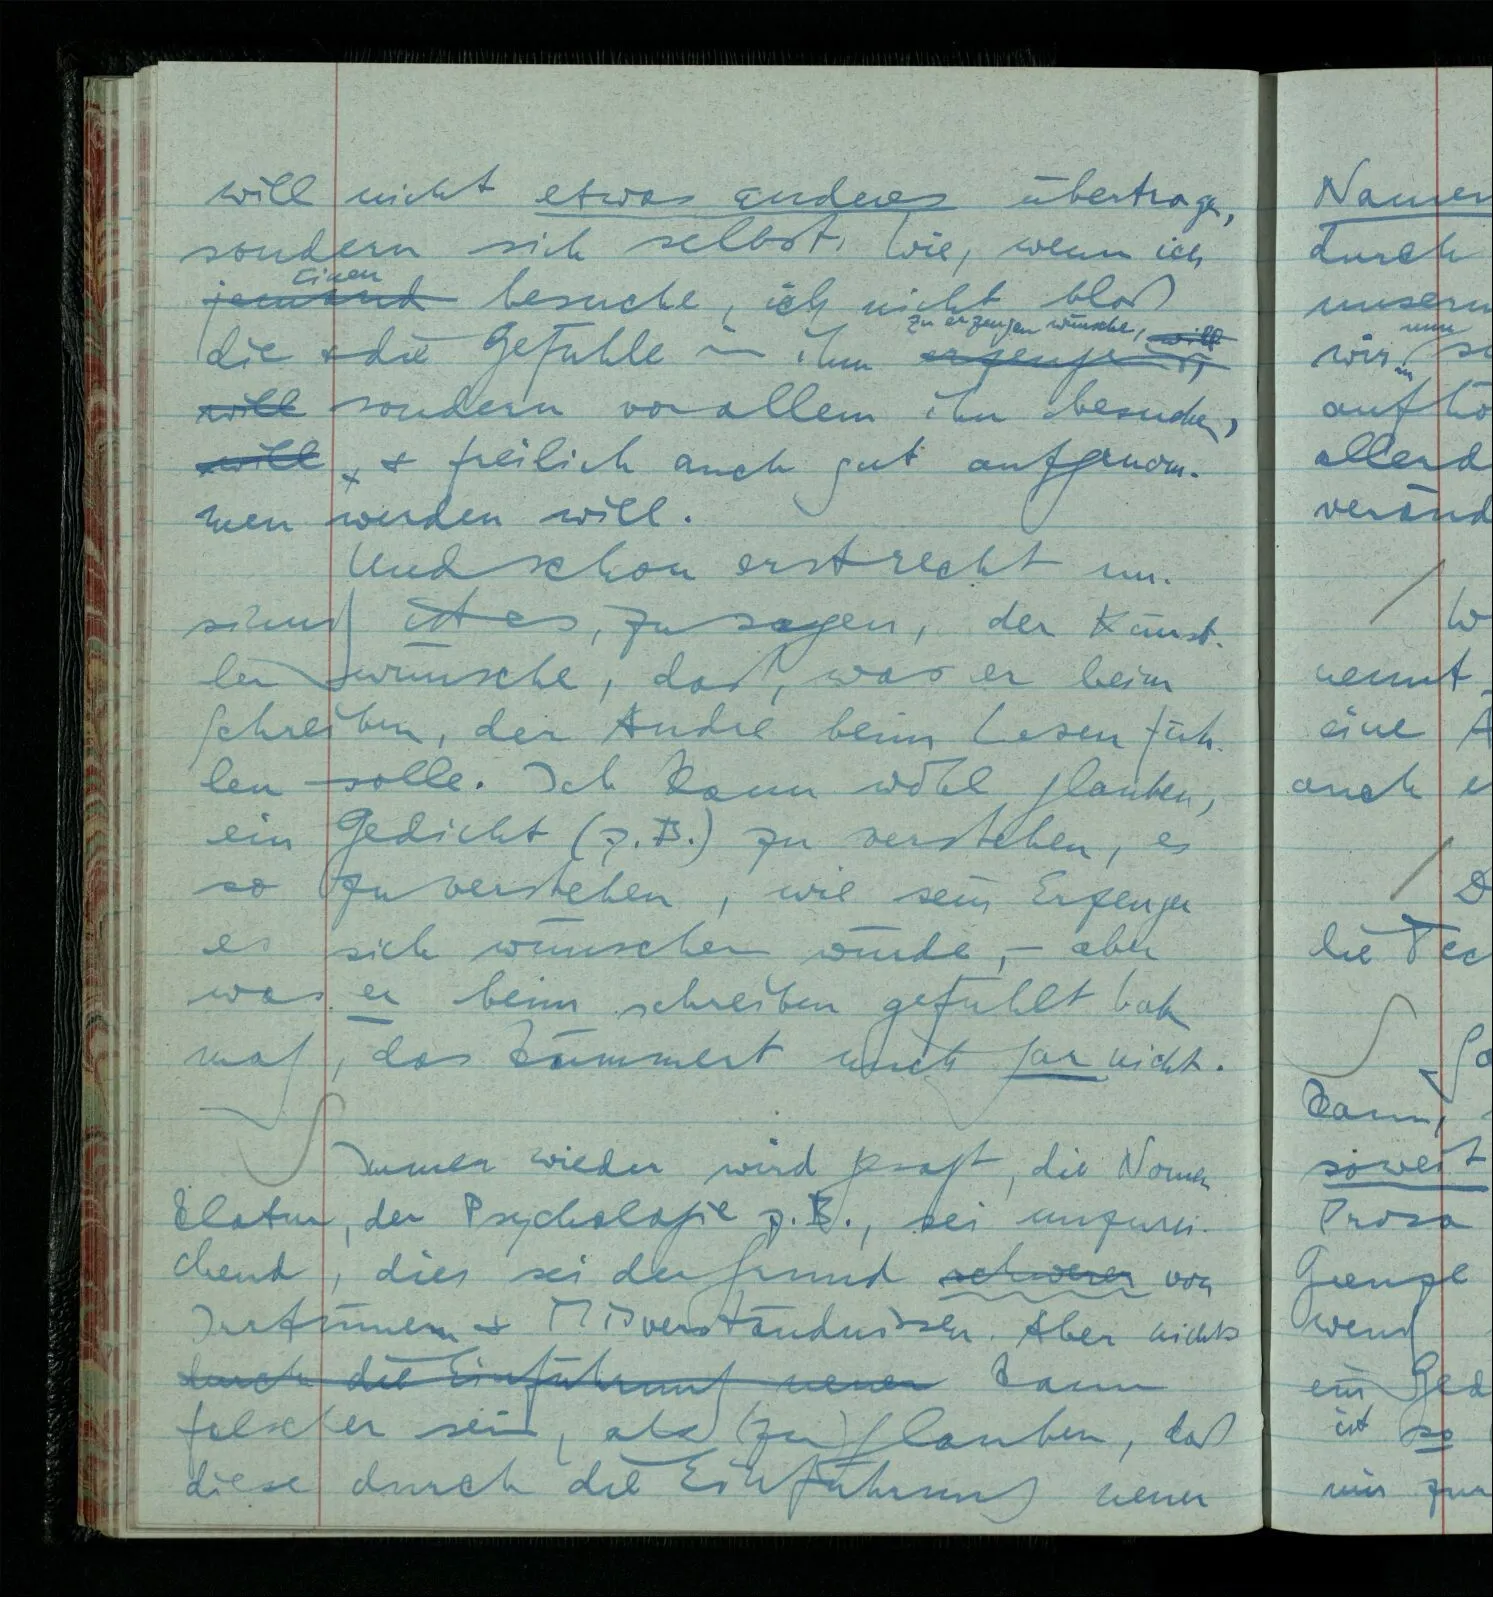 will nicht etwas anderes übertragen,
sondern sich selbst. Wie, wenn ich
einen
jemand besuche, ich nicht bloß
zu erzeugen wünsche, will
die & die Gefühle in ihm erzeugen
will sondern vor allem ihn besuchen,
will & freilich auch gut aufgenom-
men werden will.
Und schon erst recht un-
sinnig ist es, zu sagen, der Künst-
ler wünsche, daß, was er beim
Schreiben, der Andre beim Lesen füh-
len solle. Ich kann wohl glauben,
ein Gedicht (z.B.) zu verstehen, es
so zu verstehen, wie sein Erzeuger
es sich wünschen würde, – aber
was er beim schreiben gefühlt haben
mag, das kümmert mich gar nicht.
Immer wieder wird gesagt, die Nomen
klatur, der Psychologie z.B., sei unzurei-
chend, dies sei der Grund schwerer von
Irrtümern & Mißverständnissen. Aber nichts
durch die Einführung neuer kann
falscher sein, als (zu) glauben, daß
diese durch die Einführung neuer
Namen
durch
unsern
nun
wir
auf
allerd
veränd
W
nennt
eine A
auch e
D
die Tec
kann,
soweit
Prosa
Grenze
wenig
ein Ged
ist so
mir zur